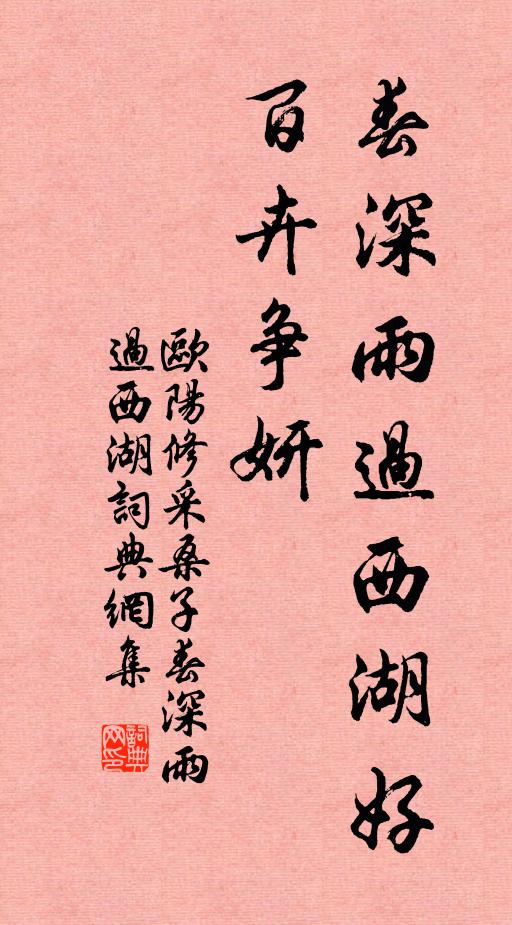 春深雨過西湖好
百卉争妍
歐陽修采桑子春深雨
過西湖詞典網集
詞典
网印